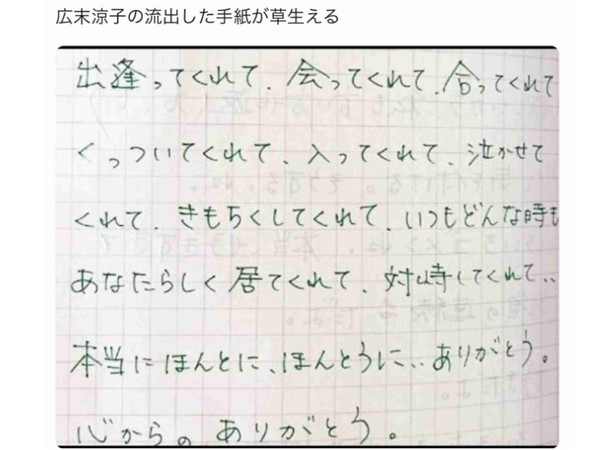 広末涼子の流出した手紙が草生える
出逢ってくれて、会ってくれて、合ってくれて
くっついてくれて、入ってくれて、泣かせて
くれて、きもちくしてくれて、いつもどんな時も
あなたらしく居てくれて、対峙してくれて..
本当にほんとに、ほんとうに..ありがとう。
心からの ありがとう。